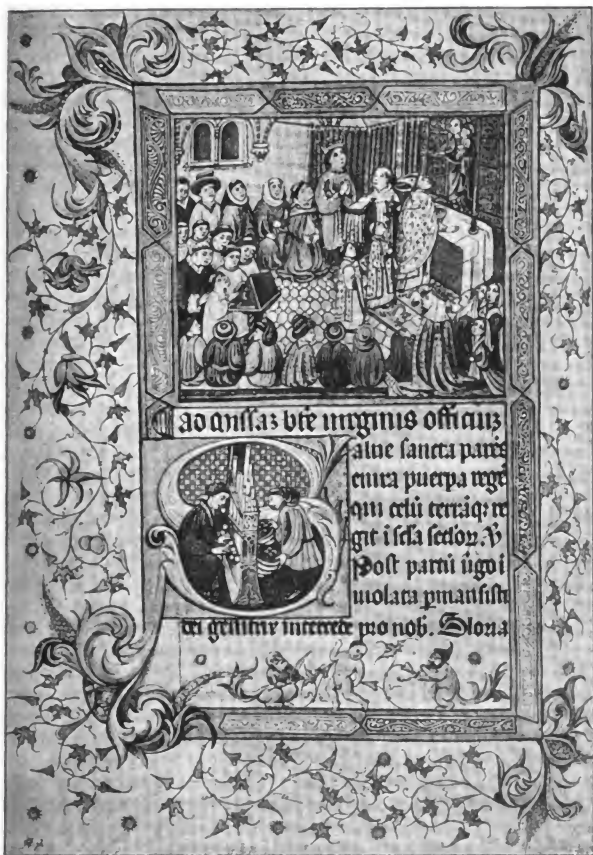 ad missaz bte virginis officiuz
alue sancta pares
enixa puerpa rege
qui celū terrāq; re
git i scła scłoꝝ. ꝟ
Post partū ūgo i
uiolata ꝑmansisti
dei genitrix intercede pro nob. Gloria